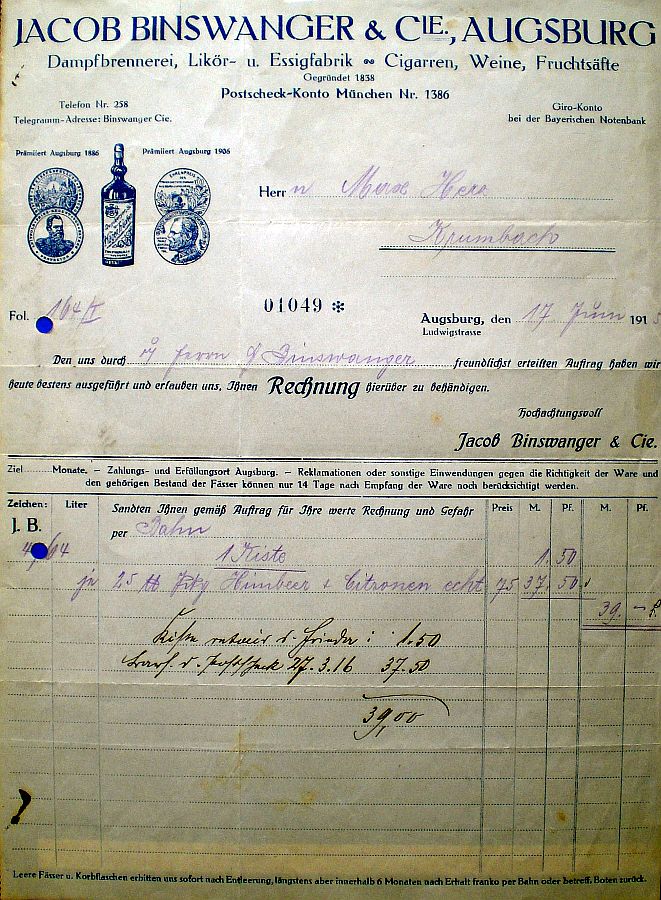 JACOB BINSWANGER & CIE., AUGSBURG
Dampfbrennerei, Likör- u. Essigfabrik ∞ Cigarren, Weine, Fruchtsäfte
Gegründet 1838
Postscheck-Konto München Nr. 1386
Telefon Nr. 258
Telegramm-Adresse: Binswanger Cie.
Giro-Konto
bei der Bayerischen Notenbank
Prämiiert Augsburg 1886 Prämiiert Augsburg 1906
Herr n Max Herz
Krumbach
Fol. 164/II
01049 *
Augsburg, den 17 Juni 191
Ludwigstrasse
Den uns durch Herrn Binswanger freundlichst erteilten Auftrag haben wir
heute bestens ausgeführt und erlauben uns, Ihnen Rechnung hierüber zu behändigen.
Hochachtungsvoll
Jacob Binswanger & Cie.
Ziel Monate. – Zahlungs- und Erfüllungsort Augsburg. – Reklamationen oder sonstige Einwendungen gegen die Richtigkeit der Ware und
den gehörigen Bestand der Fässer können nur 14 Tage nach Empfang der Ware noch berücksichtigt werden.
Zeichen: Liter Sandten Ihnen gemäß Auftrag für Ihre werte Rechnung und Gefahr Preis M. Pf. M. Pf.
J. B. per Bahn
1 Kiste 1.50
je 25 Himbeer + Citronen echt 75 37.50
39.–
Kiste retour d. Frieda : 1.50
d. Postscheck 27.3.16 37.50
39,00
Leere Fässer u. Korbflaschen erbitten uns sofort nach Entleerung, längstens aber innerhalb 6 Monaten nach Erhalt franko per Bahn oder betreff. Boten zurück.